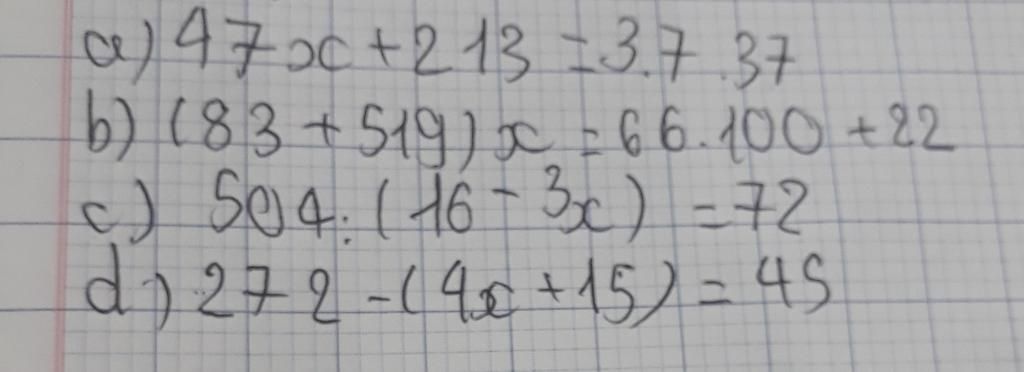 a) 47x + 213 = 3.7.37
b) (83 + 519) x = 66.100 + 22
c) 504 : (16 - 3x) = 72
d) 272 - (4x + 15) = 45